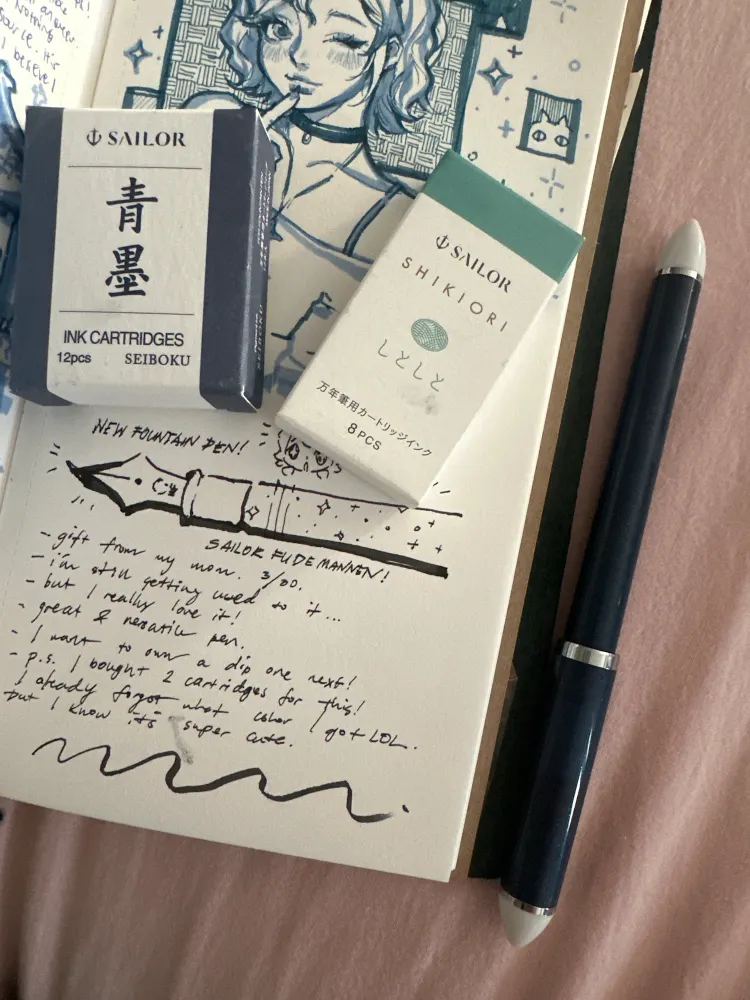 believe!
SAILOR
青墨
INK CARTRIDGES
12pcs SEIBOKU
SEIBOKU
SAILOR
SHIKIORI
しとしと
万年筆用カートリッジインク
8 PCS
NEW FOUNTAIN PEN!
SAILOR FUDE MANNEN!
- gift from my mom. 3/20.
- i'm still getting used to it...
- but I really love it!
- great & pen.
- I want to own a dip one next!
- p.s. I bought 2 cartridges for this!
I already forgot what color I got LOL.
but I know it's super cute.